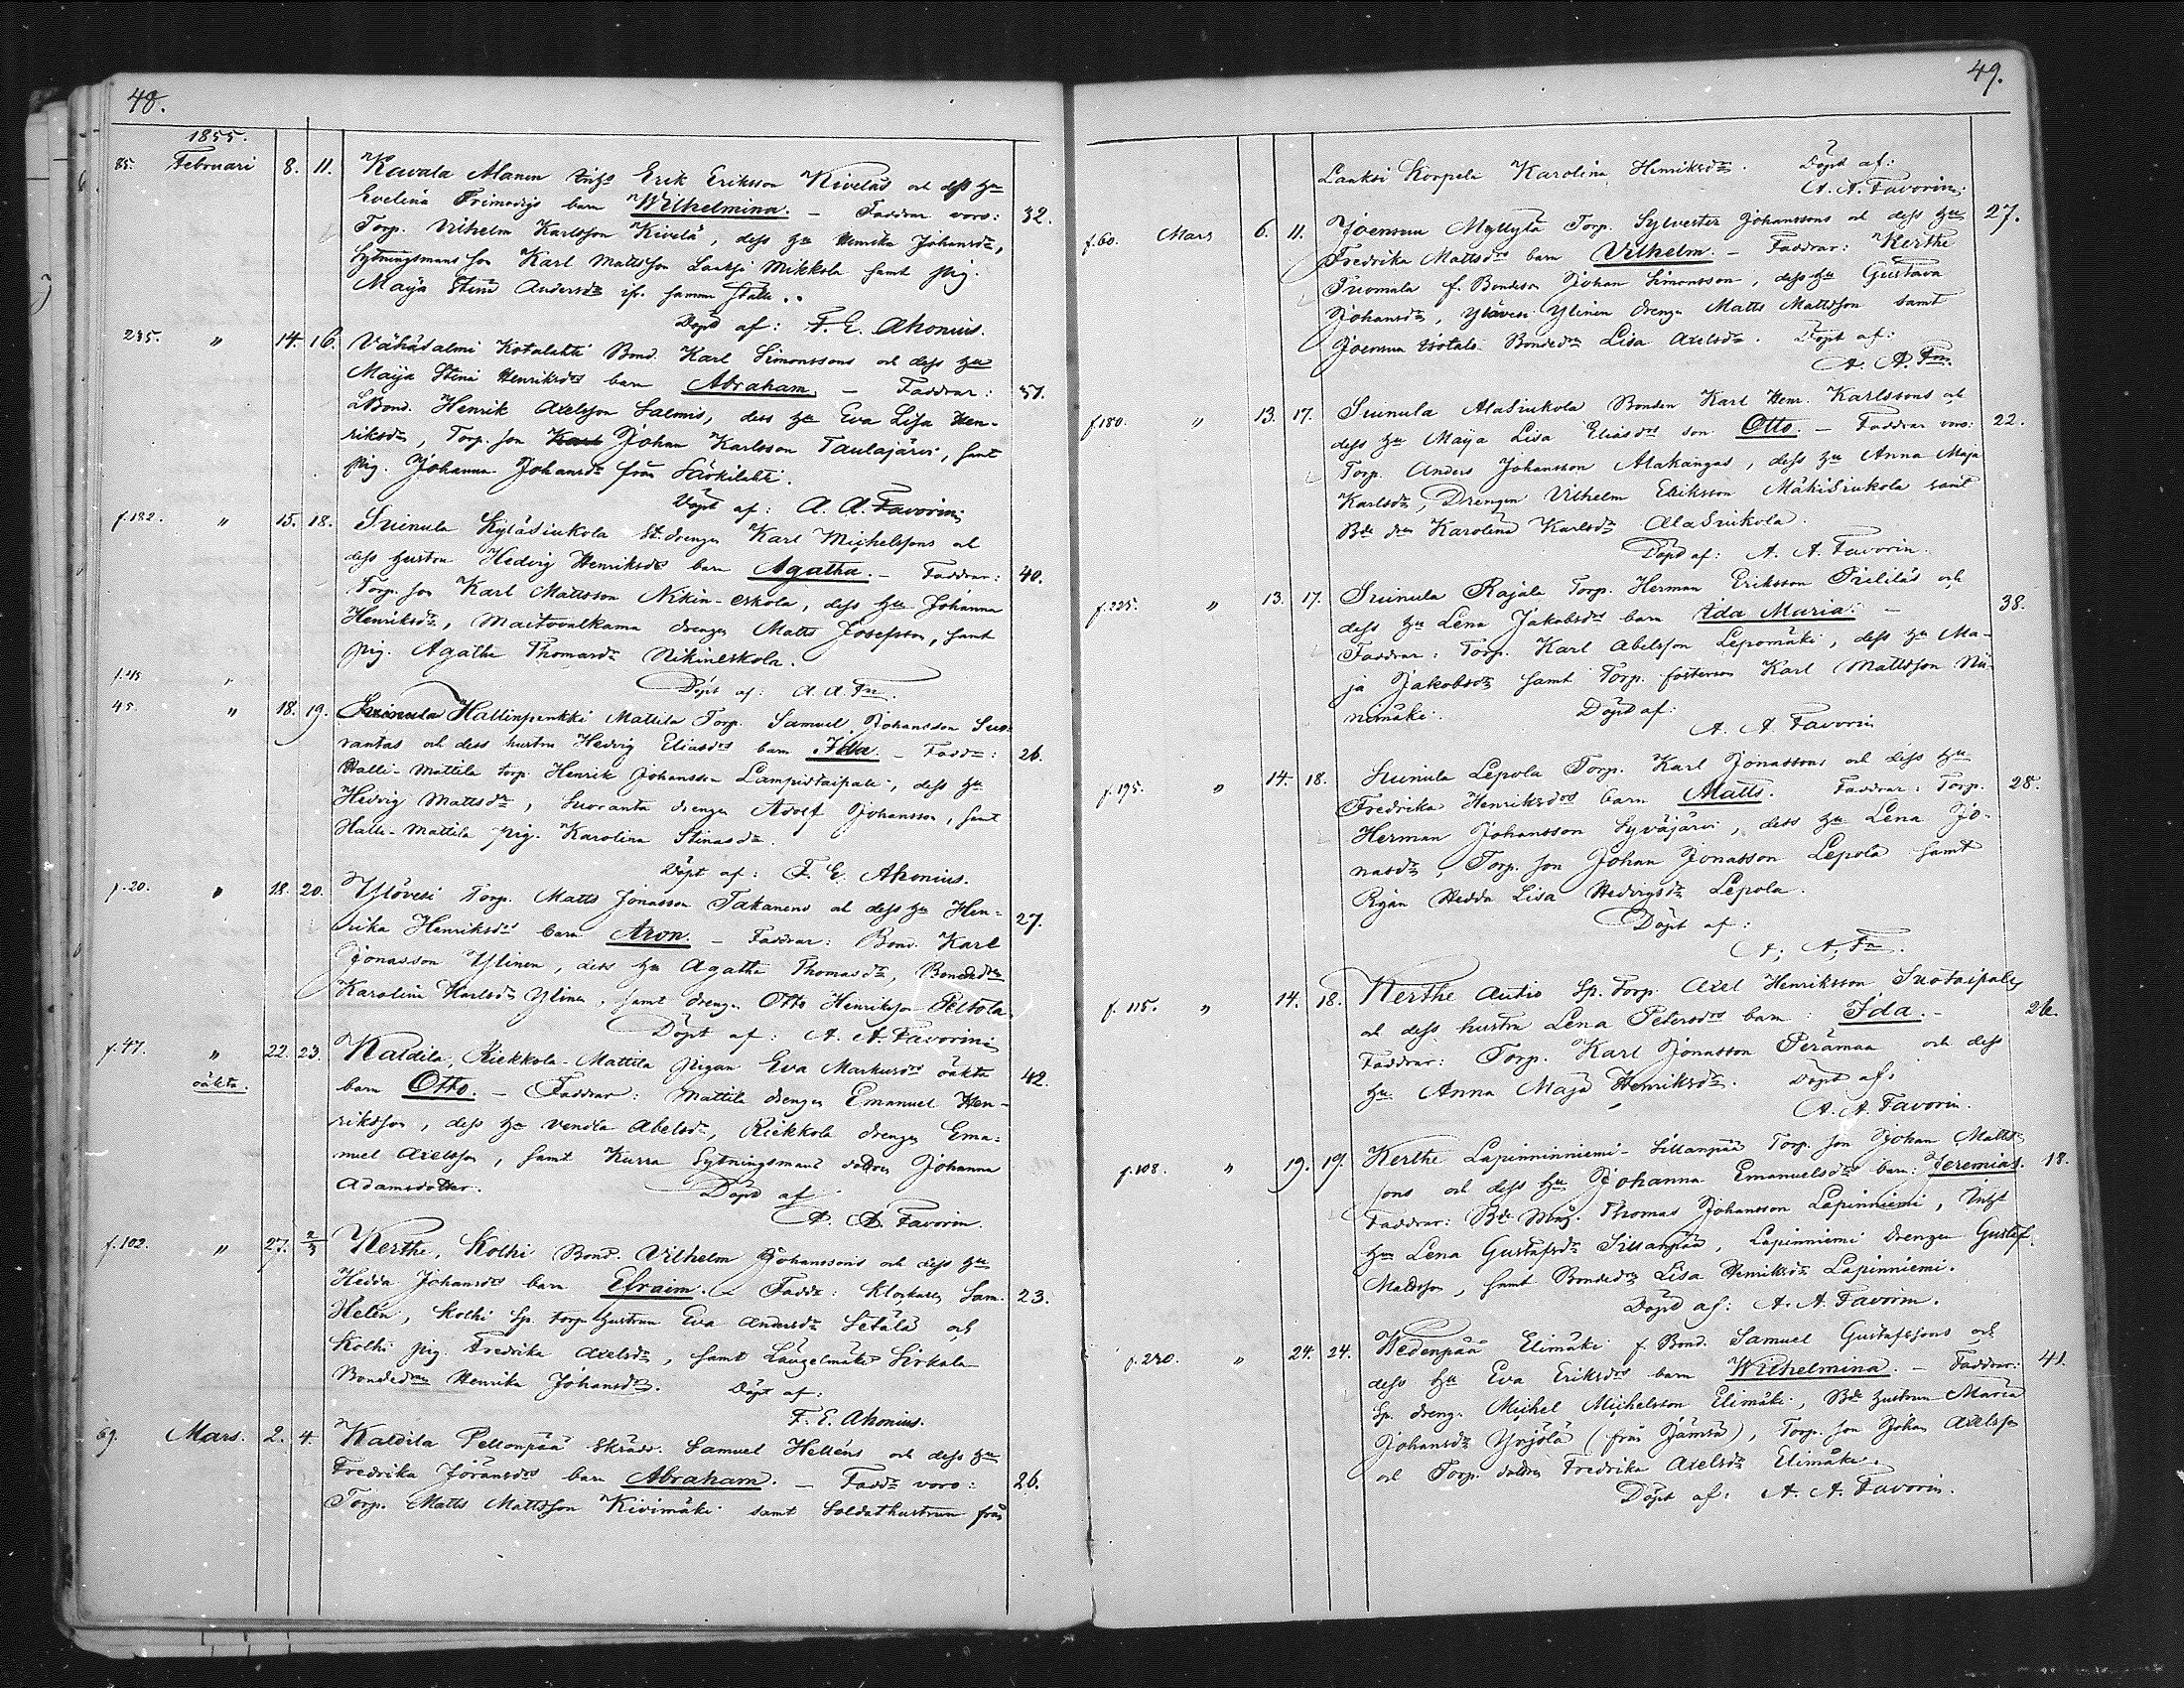 48.
1855.
85. Februari 8. 11. Kavala Manen Erik Eriksson Kiveläs och dess hu
Evelina Frimodigs barn Wilhelmina. — Faddrar voro: 32.
Torp. Vilhelm Karlsson Kivelä, dess hu Henrika Johansdr,
Sytningsmans son Karl Mattsson Laaksi Mikkola samt pig.
Maija Stina Andersdr ifr. samma ställe.
Döpt af: F. E. Ahonius.
235. " 14. 16. Vähäsalmi Kotalahti Bond. Karl Simonssons och dess hu
Maija Stina Henriksdrs barn Abraham. — Faddrar: 31.
Bond. Henrik Axelsson Salmis, dess hu Eva Lisa Hen-
riksdr, Torp. son Karl Johan Karlsson Taulajärvi, samt
pig. Johanna Johansdr från Särkilahti.
Döpt af: A. A. Favorin
f.182. " 15. 18. Suinula Kyläsiukola St. drengen Karl Michelssons och
dess hustru Hedvig Henriksdrs barn Agatha. — Faddrar: 40.
Torp. son Karl Mattsson Nikin-eskola, dess hu Johanna
Henriksdr, Maitovalkama drengen Matts Josefsson, samt
pig. Agatha Thomasdr Nikineskola.
Döpt af: A. A. Fn.
45. " 18. 19. Suinula Hallinpenkki Mattila Torp. Samuel Johansson Suo-
rantas och dess hustru Hedvig Eliasdrs barn Ida. — Faddr: 26.
Halli-Mattila torp. Henrik Johansson Lampistaipale, dess hu
Hedvig Mattsdr, Suoranta drengen Adolf Johansson, samt
Halli-Mattila pig. Karolina Stinasdr.
Döpt af: F. E. Ahonius.
f.20. " 18. 20. Ylövesi Torp. Matts Jonasson Takanens och dess hu Hen-
rika Henriksdrs barn Aron. — Faddrar: Bond. Karl 27.
Jonasson Ylinen, dess hu Agatha Thomasdr, Bondedr
Karolina Karlsdr Ylinen, samt drengen Otto Henriksson Peltola.
Döpt af: A. A. Favorin
f.47. " 22. 23. Kaldila, Riekkola-Mattila pigan Eva Markusdrs oäkta
oäkta. barn Otto. — Faddrar: Mattila drengen Emanuel Hen- 42.
riksson, dess hu Vendla Abelsdr, Riekkola drengen Ema-
nuel Axelsson, samt Kurra Sytningsmans dotter Johanna
Adamsdotter. Döpt af
A. A. Favorin.
f.102. " 27. 2/3 Kerthe, Kolhi Bond. Vilhelm Johanssons och dess hu
Hedda Johansdrs barn Efraim. — Faddr: Klockaren Sam. 23.
Helén, Kolhi Sp. torp. hustrun Eva Andersdr Setälä och
Kolhi pig. Fredrika Axelsdr, samt Längelmäki Sirkala
Bondedr Henrika Johansdr. Döpt af:
F. E. Ahonius.
69. Mars. 2. 4. Kaldila Pellonpää Skrädd. Samuel Helléns och dess hu
Fredrika Göransdrs barn Abraham. — Faddr voro: 26.
Torp. Matts Mattsson Kivimäki samt Soldathustrun från
49.
Laaksi Korpela Karolina Henriksdr. Döpt af:
A. A. Favorin.
f.60. Mars 6. 11. Joensuu Myllylä Torp. Sylvester Johanssons och dess hu 27.
Fredrika Mattsdrs barn Vilhelm. — Faddrar: Kerthe
Tuomala f. Bondeson Johan Simonsson, dess hu Gustava
Johansdr, Ylövesi Ylinen drengen Matts Mattsson samt
Joensuu Isotalo Bondedr Lisa Axelsdr. Döpt af:
A. A. Fn.
f.180. " 13. 17. Suinula AlaSiukola Bonden Karl Henr. Karlssons och
dess hu Maija Lisa Eliasdrs son Otto. — Faddrar voro: 22.
Torp. Anders Johansson Alakangas, dess hu Anna Maja
Karlsdr, Drengen Vilhelm Eriksson MäkiSiukola samt
Bde dr Karolina Karlsdr AlaSiukola.
Döpt af: A. A. Favorin.
f.225. " 13. 17. Suinula Rajala Torp. Herman Eriksson och
dess hu Lena Jakobsdrs barn Ida Maria. — 38.
Faddrar: Torp. Karl Abelsson Lepomäki, dess hu Ma-
ja Jakobsdr samt Torp. fosterson Karl Mattsson Nii-
nimäki. Döpt af:
A. A. Favorin
f.195. " 14. 18. Suinula Lepola Torp. Karl Jonassons och dess hu
Fredrika Henriksdrs barn Matts. Faddrar: Torp. 28.
Herman Johansson Syväjärvi, dess hu Lena Jo-
nasdr, Torp. son Johan Jonasson Lepola samt
Pigan Hedda Lisa Hedvigsdr Lepola.
Döpt af:
A. A. Fn.
f. 115. " 14. 18. Kerthe Autio Sp. Torp. Axel Henriksson Suotaipale
och dess hustru Lena Petersdrs barn: Ida. — 26.
Faddrar: Torp. Karl Jonasson Perämaa och dess
hu Anna Maja Henriksdr. Döpt af:
A. A. Favorin.
f.108. " 19. 19. Kerthe Lapinniemi-Sillanpää Torp. son Johan Matts-
sons och dess hu Johanna Emanuelsdrs barn: Jeremias. 18.
Faddrar: Bde Måg. Thomas Johansson Lapinniemi,
hu Lena Gustafsdr Sillanpää, Lapinniemi drengen Gustaf
Mattsson, samt Bondedr Lisa Henriksdr Lapinniemi.
Döpt af: A. A. Favorin.
f.240. " 24. 24. Wedenpää Elimäki f. Bond. Samuel Gustafssons och
dess hu Eva Eriksdrs barn Wilhelmina. — Faddrar: 41.
Sp. dreng. Michel Michelsson Elimäki, Bde hustrun Maria
Johansdr Yrjölä (från Jämsä), Torp. son Johan Axelsson
och Torp. dotter Fredrika Axelsdr Elimäki.
Döpt af: A. A. Favorin.